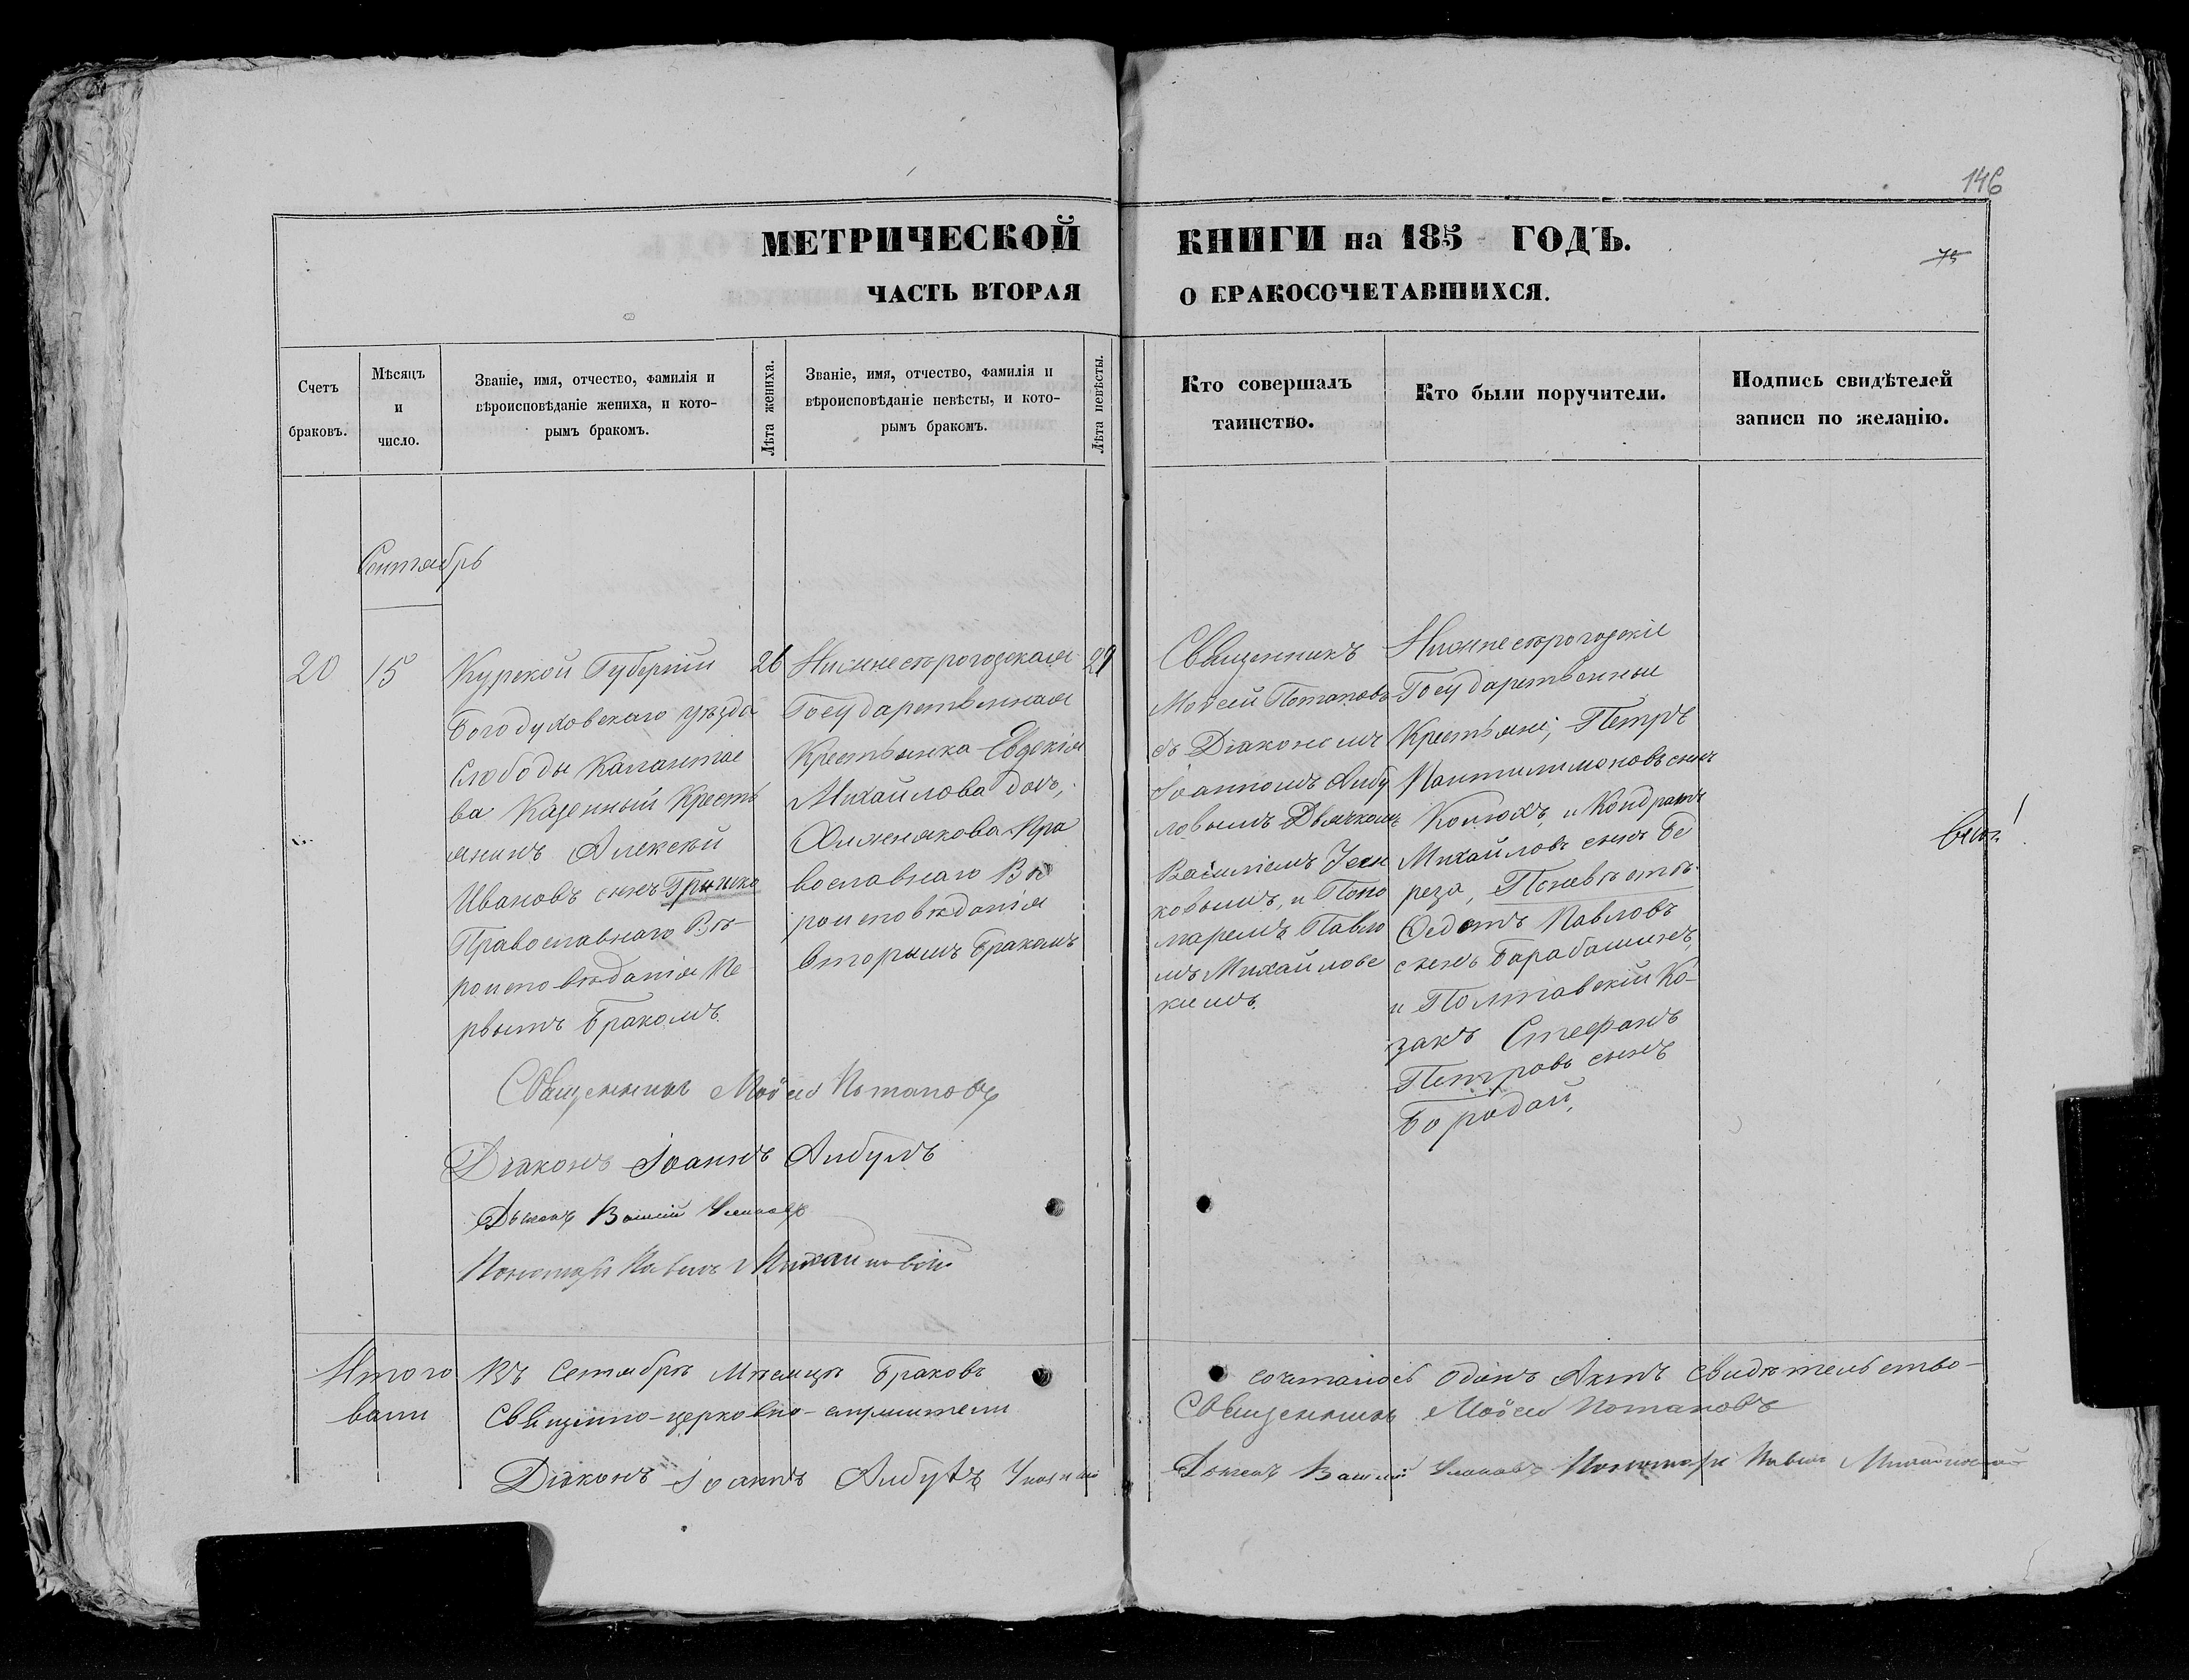 146
МЕТРИЧЕСКОЙ КНИГИ на 185 ГОДЪ.
75
ЧАСТЬ ВТОРАЯ О БРАКОСОЧЕТАВШИХСЯ.
Счетъ браковъ.
Мѣсяцъ и число.
Званіе, имя, отчество, фамилія и
вѣроисповѣданіе жениха, и кото-
рымъ бракомъ.
Лѣта жениха.
Званіе, имя, отчество, фамилія и
вѣроисповѣданіе невѣсты, и кото-
рымъ бракомъ.
Лѣта невѣсты.
Кто совершалъ
таинство.
Кто были поручители.
Подпись свидѣтелей
записи по желанію.
Сентябрь
20
15
Курской Губерніи
Богодуховскаго уѣзда
Слободы Калантае
ва Казенный Кресть
янинъ Алексѣй
Ивановъ сынъ Гришко
Православнаго Вѣ-
роисповѣданія Пе
рвымъ Бракомъ
26
Нижнесѣрогозская
Государственная
Крестьянка Евдокія
Михайлова дочь,
Хижнякова Пра
вославнаго Вѣ
роисповѣданія
вторымъ Бракомъ
29
Священникъ
Моѵсей Потаповъ
съ Діакономъ
Іоанномъ Анбу
ловымъ Дьячкомъ
Василіемъ
ковымъ, и Поно
маремъ Павло
мъ Михайловс
кимъ.
Нижнесѣрогозскіе
Государственные
Крестьяне; Петръ
Пантилимоновъ сынъ
Конюхъ, и Кондратъ
Михайловъ сынъ Бе
реза, По невѣстѣ
Федотъ Павловъ
сынъ Барабашинъ,
и Полтавскій Ко-
закъ Стефанъ
Петровъ сынъ
Бородай,
Священникъ Моѵсей Потаповъ
Діаконъ Іоаннъ
Дьячекъ Василій
Пономарь Павелъ Михайловскій
Итого Въ Сентябрѣ Мѣсяцѣ Браковъ сочеталось одинъ Актъ свидѣтельство-
вали Священно-церковно-служители Священникъ Моѵсей Потаповъ
Діаконъ Іоаннъ
Дьячекъ Василій Пономарь Павелъ Михайловскій